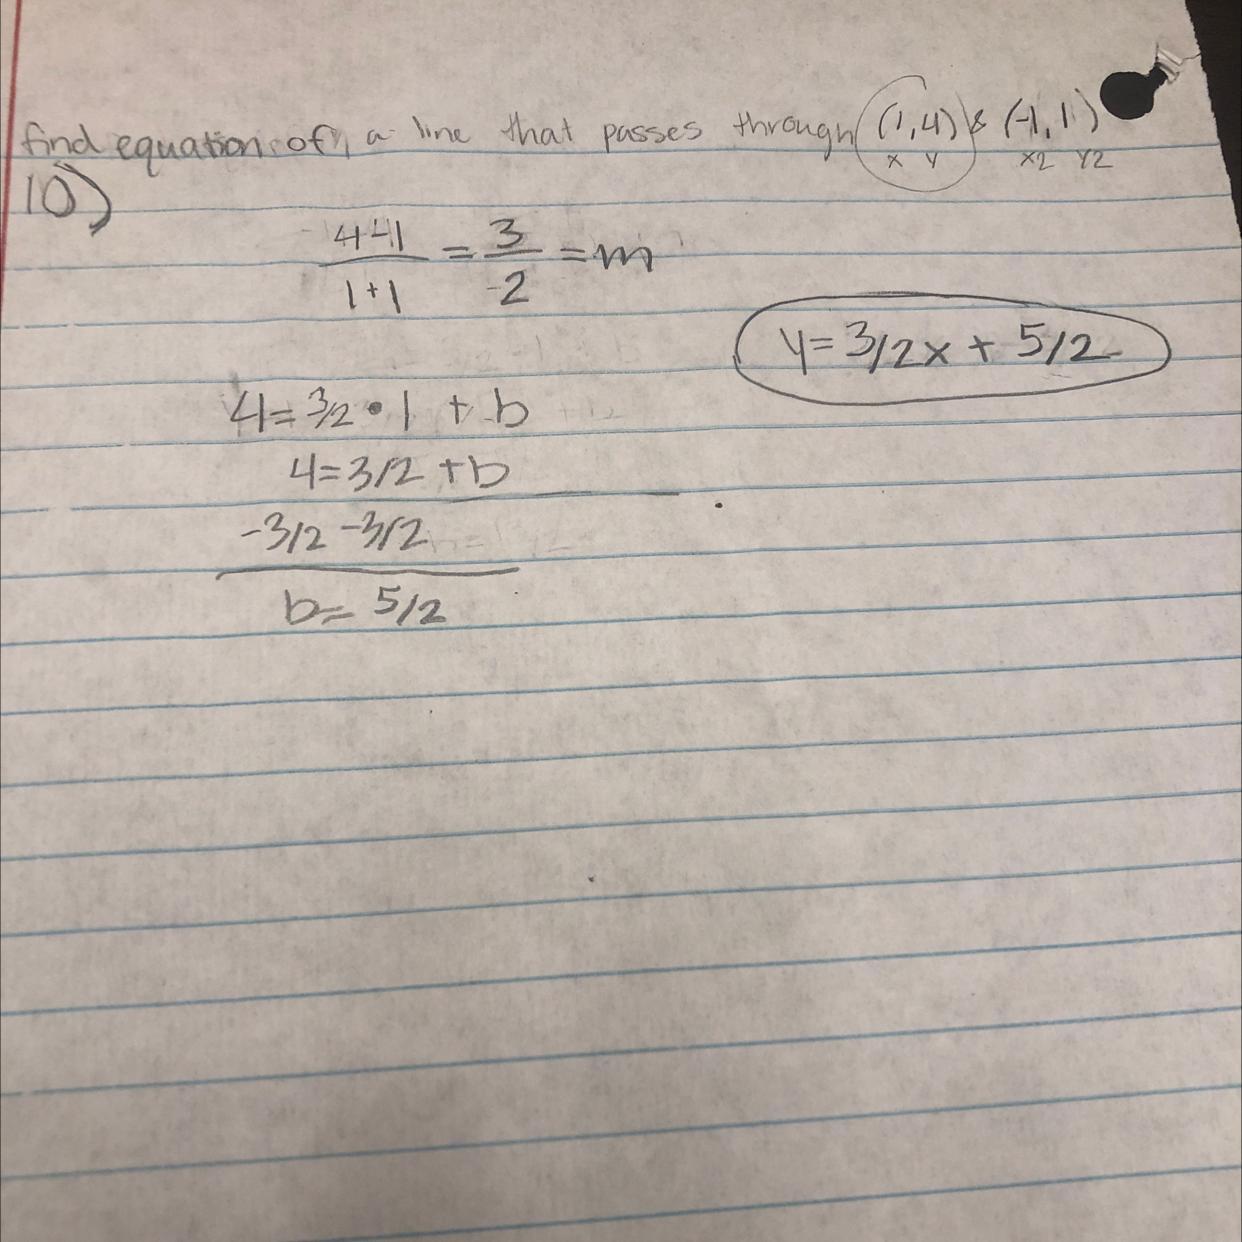 find equation of a line that passes through (1,4) & (-1,1)
x y x2 y2
10)
4-1/1+1 = 3/2 = m
y=3/2x + 5/2
4=3/2•1 + b
4=3/2 +b
-3/2 -3/2
b= 5/2